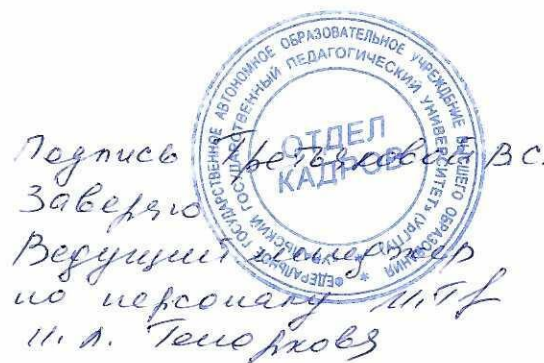 ФЕДЕРАЛЬНОЕ ГОСУДАРСТВЕННОЕ АВТОНОМНОЕ ОБРАЗОВАТЕЛЬНОЕ УЧРЕЖДЕНИЕ ВЫСШЕГО ОБРАЗОВАНИЯ
ГОСУДАРСТВЕННЫЙ ПЕДАГОГИЧЕСКИЙ УНИВЕРСИТЕТ» (УрГПУ)
ОТДЕЛ
КАДРОВ
Подпись Третьяковой В.С.
Заверяю
Ведущий менеджер
по персоналу